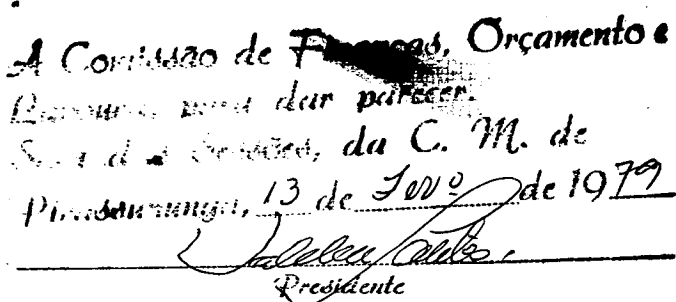 A Comissão de Finanças, Orçamento e
para dar parecer.
Sala das Sessões, da C. M. de
Pirassununga, 13 de Fevº de 1979
Presidente